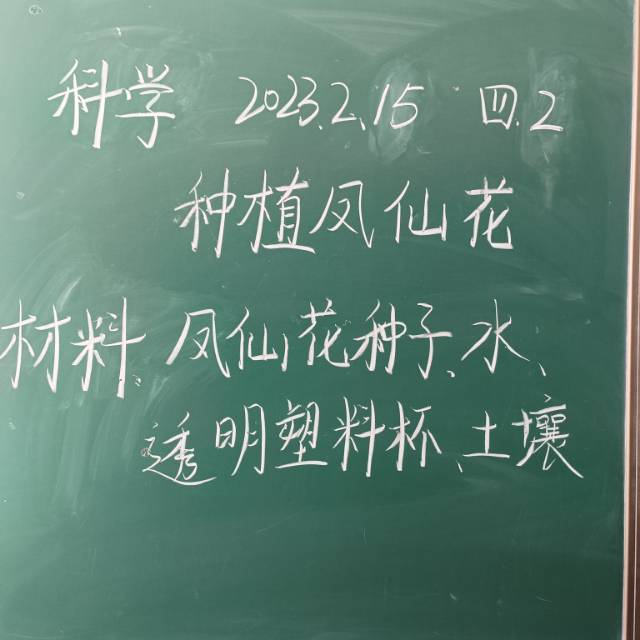 科学 2023.2.15 四.2
种植凤仙花
材料、凤仙花种子、水、
透明塑料杯、土壤